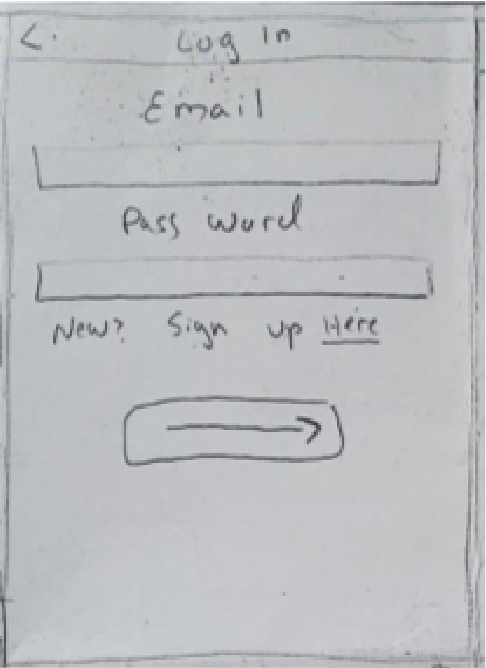 < Log In
Email
Pass word
New? Sign up Here